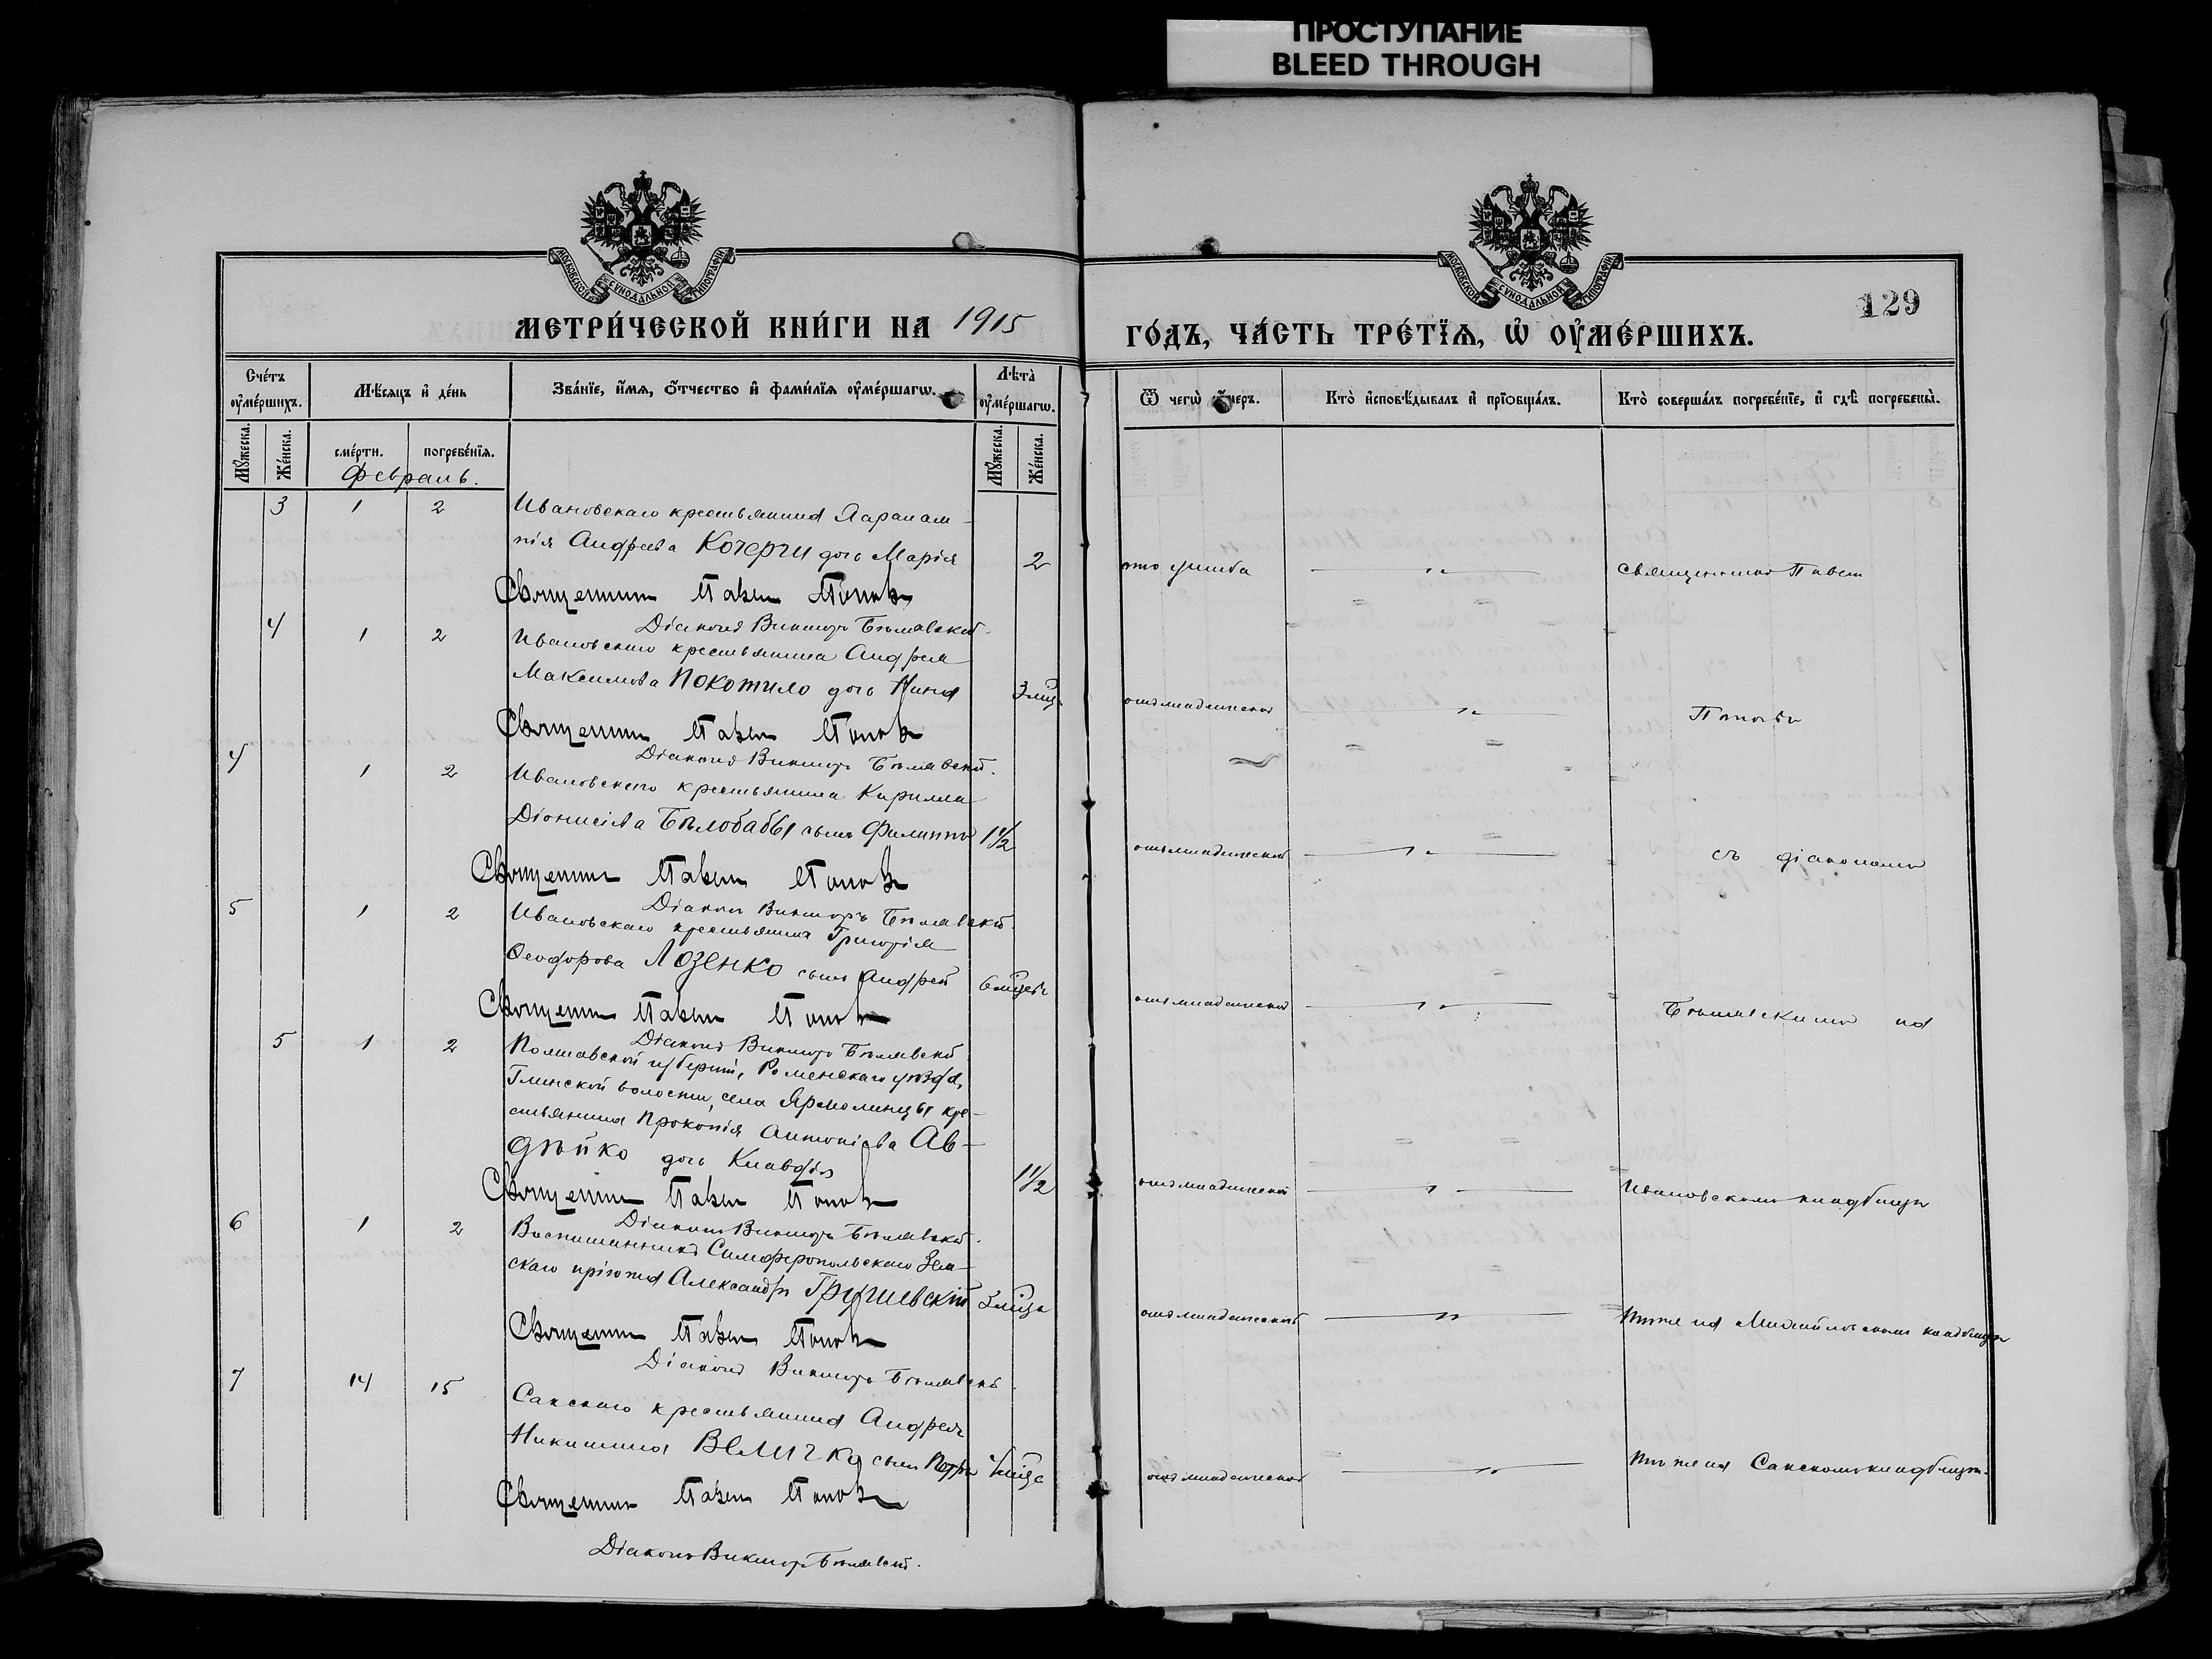 ПРОСТУПАНИЕ
BLEED THROUGH
МОСКОВСКОЙ СУНОДАЛЬНОЙ ТИПОГРАФІИ
МОСКОВСКОЙ СУНОДАЛЬНОЙ ТИПОГРАФІИ
129
МЕТРИ́ЧЕСКОЙ КНИ́ГИ НА 1915
ГО́ДЪ, ЧА́СТЬ ТРЕ́ТЇѦ, Ѡ҆ ОУ҆МЕ́РШИХЪ.
Сче́тъ оу҆ме́ршихъ.
Мѣ́сѧцъ и҆ де́нь
Зва́нїе, и҆́мѧ, ѻ҆́тчество и҆ фами́лїѧ оу҆ме́ршагѡ.
Лѣта̀ оу҆ме́ршагѡ.
Ѿ чегѡ̀ оу҆́меръ.
Кто̀ и҆сповѣ́дывалъ и҆ прїѡбща́лъ.
Кто̀ соверша́лъ погребе́нїе, и҆ гдѣ̀ погребены̀.
Мꙋ́жеска.
Же́нска.
сме́рти.
погребе́нїѧ.
Мꙋ́жеска.
Же́нска.
Февраль.
3 1 2 Ивановскаго крестьянина Харалам-
пія Андреева Кочерги дочь Марія 2 отъ ушиба священникъ Павелъ
Священникъ Павелъ Поповъ
Діаконъ Викторъ Бѣлявскій.
4 1 2 Ивановскаго крестьянина Андрея
Максимова Покотило дочь Нина 3 мца отъ младенческой Поповъ
Священникъ Павелъ Поповъ
Діаконъ Викторъ Бѣлявскій.
4 1 2 Ивановскаго крестьянина Кирилла
Діонисіева Бѣлобабы сынъ Филиппъ 1 1/2 отъ младенческой съ діакономъ
Священникъ Павелъ Поповъ
Діаконъ Викторъ Бѣлявскій.
5 1 2 Ивановскаго крестьянина Григорія
Ѳеодорова Лозенко сынъ Андрей 6 мцевъ отъ младенческой Бѣлявскимъ на
Священникъ Павелъ Поповъ
Діаконъ Викторъ Бѣлявскій
5 1 2 Полтавской губерніи, Роменскаго уѣзда,
Глинской волости, села Ярмолинцы кре-
стьянина Прокопія Антоніева Ав-
дѣйко дочь Клавдія 1 1/2 отъ младенческой Ивановскомъ кладбищѣ
Священникъ Павелъ Поповъ
Діаконъ Викторъ Бѣлявскій.
6 1 2 Воспитанникъ Симферопольскаго Зем-
скаго пріюта Александръ Грушевскій 3 мца отъ младенческой тоже на Михайловскомъ кладбищѣ
Священникъ Павелъ Поповъ
Діаконъ Викторъ Бѣлявскій.
7 14 15 Сакскаго крестьянина Андрея
Никитина Величка сынъ Петръ мца отъ младенческой тоже на Сакскомъ кладбищѣ.
Священникъ Павелъ Поповъ
Діаконъ Викторъ Бѣлявскій.